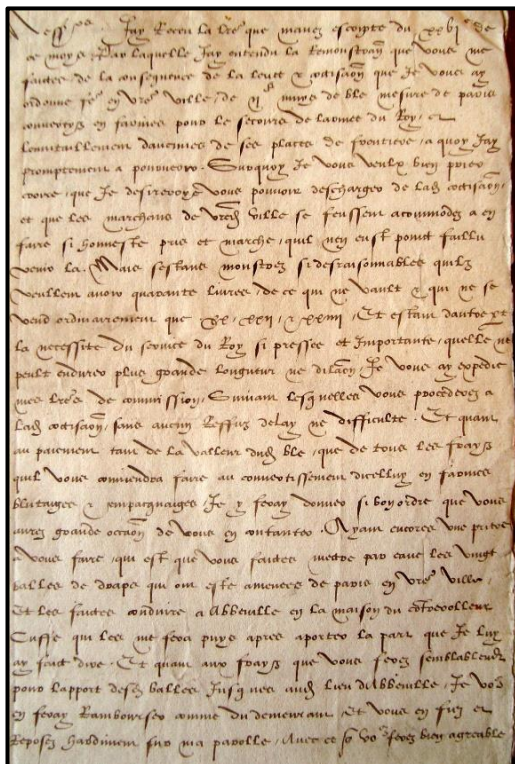 Mess.rs Jay Receu la lre que mavez escripte du xxvi.e de
ce moys Par laquelle Jay entendu la Remonstraon que vous me
faictes de la consequence de la levee & cotisaon que Je vous ay
ordonne fe en vre ville, de vi.c muys de ble mesure de paris
convertyz en farines pour le secours de larmee du Roy, et
lenvitaillement daucunes de ses places de frontiere, a quoy Jay
promptement a pourveoir. Surquoy Je vous veulx bien prier
croire, que Je desireroys vous pouvoir descharger de lad cotisaon,
et que les marchans de vred ville se feussent acommodez a en
faire si honneste pris et marche, quil nen eust point faillu
venir la. Mais sestans monstrez si desraisonnables quilz
veullent avoir quarante livres, de ce qui ne vault & qui ne se
vend ordinairement que xx, xxii, & xxiiii, Et estant dautre part
la necessite du service du Roy si pressee et Importante, quelle ne
peult endurer plus grande longueur ne dilaon, Je vous ay expedie
mes lres de commission, Suivant lesquelles vous procederez a
lad cotisaon, sans aucun Reffuz delay ne difficulte. Et quant
au paiement tant de la valleur dud ble, que de tous les fraiz
quil vous conviendra faire au convertissement dicelluy en farines
blutaiges & empacquaiges, Je y feray donner si bon ordre que vous
aurez grande occaon de vous en contanter. Ayant encores une priere
a vous faire, qui est que vous faictes mectre par eaue les vingt
balles de draps qui ont este amenees de paris en vre ville,
Et les faictes conduire a Abbeville en la maison du controrolleur
Cusse qui les me fera puys apres aporter la part que Je luy
ay faict dire, Et quant aux fraiz que vous ferez semblablement
pour lapport desd balles Jusques aud lieu dAbbeville, Je vous
en feray Rambourser comme du demeurant, Et vous en fiez et
Reposez hardiment sur ma parolle, Avec ce vous ferez bien agreable